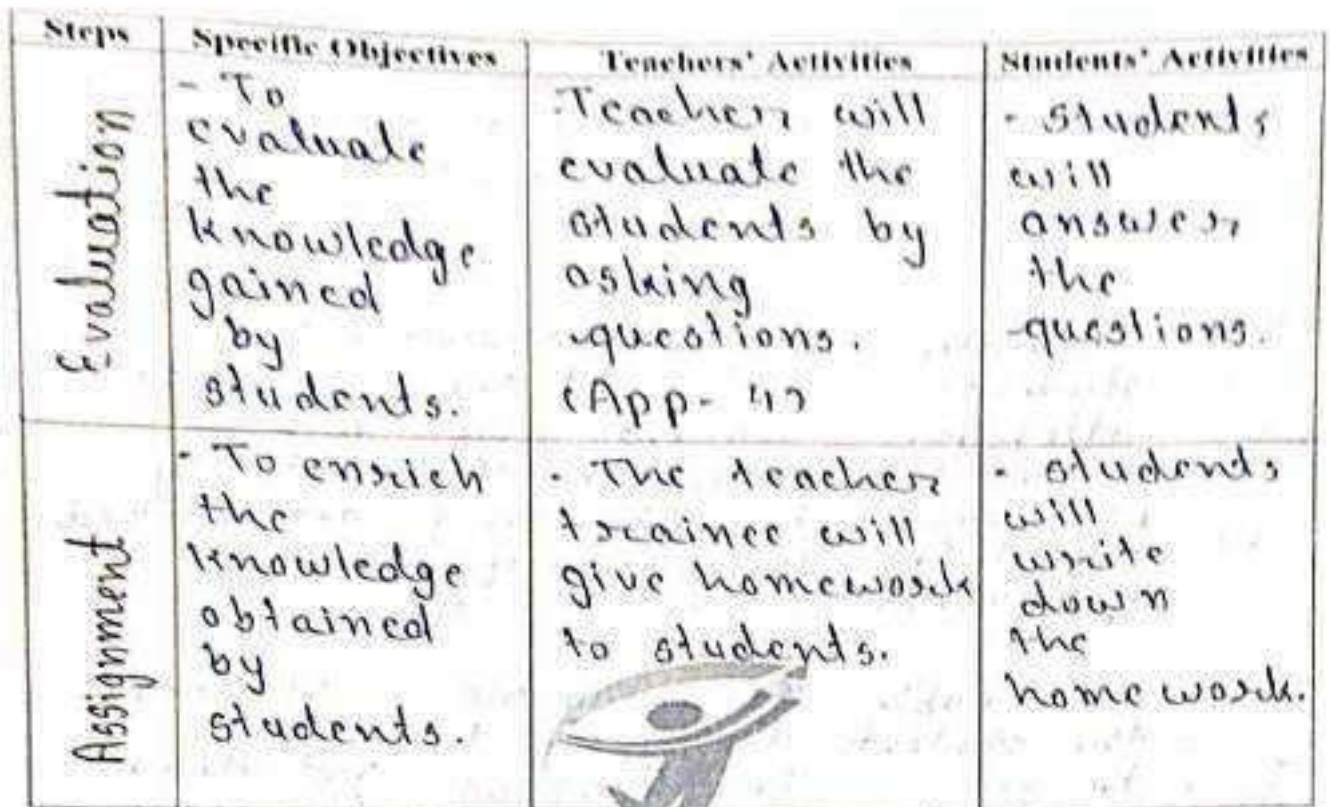 Steps
Specific Objectives
Teachers' Activities
Students' Activities
Evaluation
- To
evaluate
the
knowledge
gained
by
students.
Teacher will
evaluate the
students by
asking
questions.
(App- 4)
- Students
will
answer
the
questions.
Assignment
- To enrich
the
knowledge
obtained
by
students.
- The teacher
trainee will
give homework
to students.
- students
will
write
down
the
home work.